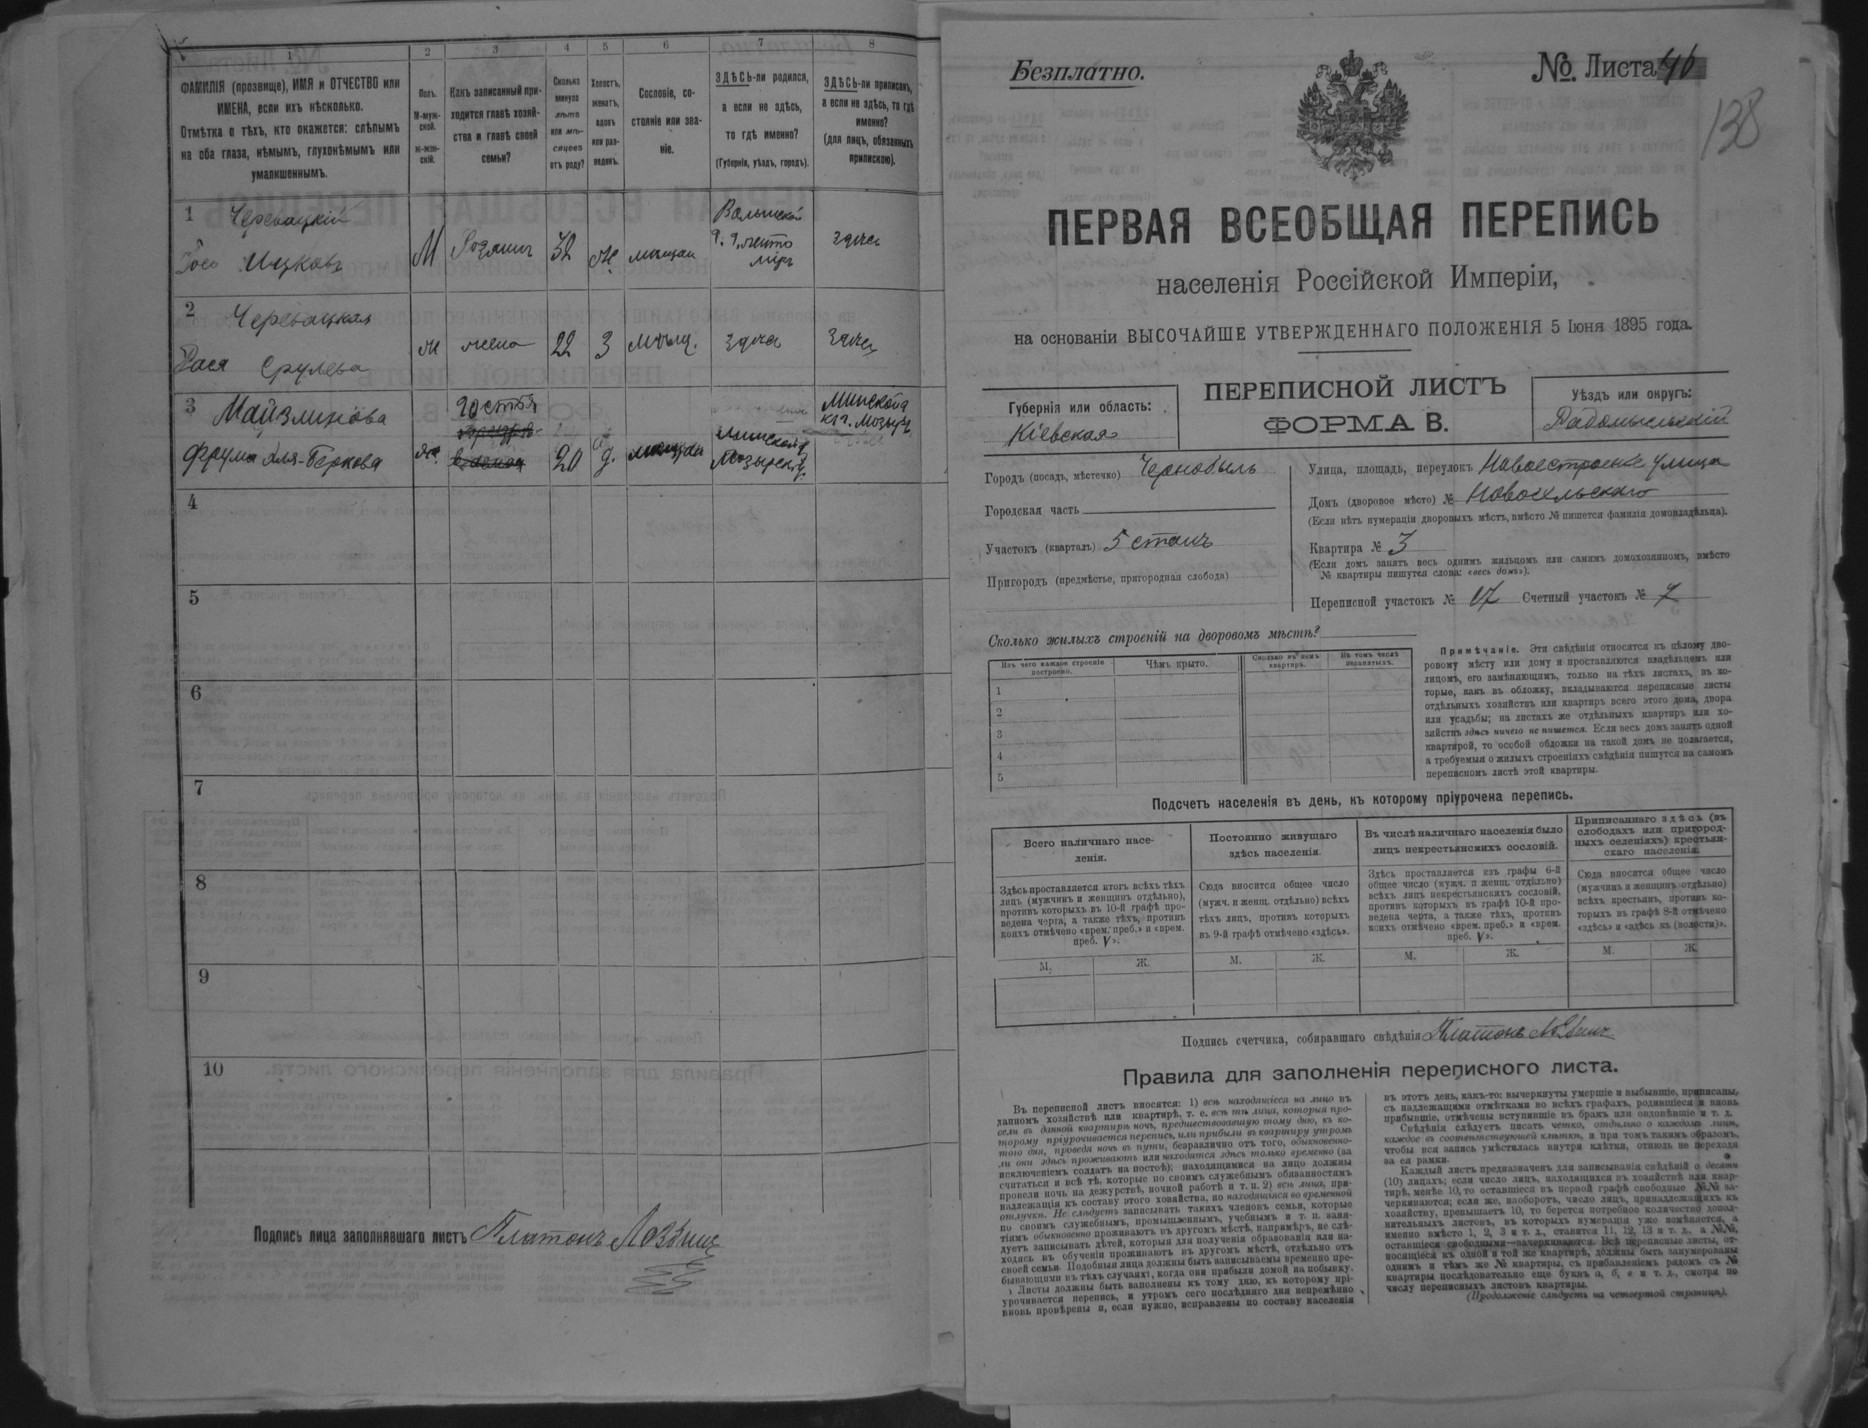 1
2
3
4
5
6
7
8
ФАМИЛІЯ (прозвище), ИМЯ и ОТЧЕСТВО или
ИМЕНА, если ихъ нѣсколько.
Отмѣтка о тѣхъ, кто окажется: слѣпымъ
на оба глаза, нѣмымъ, глухонѣмымъ или
умалишеннымъ.
Полъ.
М-муж-
ской.
Ж-жен-
скій.
Какъ записанный при-
ходится главѣ хозяй-
ства и главѣ своей
семьи?
Сколько
минуло
лѣтъ
или мѣ-
сяцевъ
отъ роду?
Холостъ,
женатъ,
вдовъ
или раз-
веденъ.
Сословіе, со-
стояніе или зва-
ніе.
ЗДѢСЬ-ли родился,
а если не здѣсь,
то гдѣ именно?
(Губернія, уѣздъ, городъ).
ЗДѢСЬ-ли приписанъ,
а если не здѣсь, то гдѣ
именно?
(для лицъ, обязанныхъ
припискою).
1
Черевацкій
Ицковъ
М
32
ж.
здѣсь
2
Черевацкая
Хася Срулева
ж
жена
22
З
мѣщ.
здѣсь
здѣсь
3 Майзликова
Фрума Эля-Беркова
ж.
гостья
20
д.
Минской г.
Мозырск. у.
Минской г.
4
5
6
7
8
9
10
Подпись лица заполнявшаго листъ Платонъ
Безплатно.
№ Листа 46
138
ПЕРВАЯ ВСЕОБЩАЯ ПЕРЕПИСЬ
населенія Россійской Имперіи,
на основаніи ВЫСОЧАЙШЕ УТВЕРЖДЕННАГО ПОЛОЖЕНІЯ 5 Іюня 1895 года.
Губернія или область:
Кіевская
ПЕРЕПИСНОЙ ЛИСТЪ
ФОРМА В.
Уѣздъ или округъ:
Радомысльскій
Городъ (посадъ, мѣстечко) Чернобыль
Городская часть
Участокъ (кварталъ) 5 станъ
Пригородъ (предмѣстье, пригородная слобода)
Улица, площадь, переулокъ Новоестроеніе улица
Домъ (дворовое мѣсто) № Новосельскаго
(Если нѣтъ нумераціи дворовыхъ мѣстъ, вмѣсто № пишется фамилія домовладѣльца).
Квартира № 3
(Если домъ занятъ весь однимъ жильцомъ или самимъ домохозяиномъ, вмѣсто
№ квартиры пишутся слова: «весь домъ»).
Переписной участокъ № 17 Счетный участокъ № 7
Сколько жилыхъ строеній на дворовомъ мѣстѣ?
Изъ чего каждое строеніе
построено.
Чѣмъ крыто.
Сколько въ немъ
квартиръ.
Въ томъ числѣ
незанятыхъ.
1
2
3
4
5
Примѣчаніе. Эти свѣдѣнія относятся къ цѣлому дво-
ровому мѣсту или дому и проставляются владѣльцемъ или
лицомъ, его замѣняющимъ, только на тѣхъ листахъ, въ ко-
торые, какъ въ обложку, вкладываются переписные листы
отдѣльныхъ хозяйствъ или квартиръ всего этого дома, двора
или усадьбы; на листахъ же отдѣльныхъ квартиръ или хо-
зяйствъ здѣсь ничего не пишется. Если весь домъ занятъ одной
квартирой, то особой обложки на такой домъ не полагается,
а требуемыя о жилыхъ строеніяхъ свѣдѣнія пишутся на самомъ
переписномъ листѣ этой квартиры.
Подсчетъ населенія въ день, къ которому пріурочена перепись.
Всего наличнаго насе-
ленія.
Постоянно живущаго
здѣсь населенія.
Въ числѣ наличнаго населенія было
лицъ некрестьянскихъ сословій.
Приписаннаго здѣсь (въ
слободахъ или пригород-
ныхъ селеніяхъ) крестьян-
скаго населенія.
Здѣсь проставляется итогъ всѣхъ тѣхъ
лицъ (мужчинъ и женщинъ отдѣльно),
противъ которыхъ въ 10-й графѣ про-
ведена черта, а также тѣхъ, противъ
коихъ отмѣчено «врем. преб.» и «врем.
преб. V».
Сюда вносится общее число
(мужч. и женщ. отдѣльно) всѣхъ
тѣхъ лицъ, противъ которыхъ
въ 9-й графѣ отмѣчено «здѣсь».
Здѣсь проставляется изъ графы 6-й
общее число (мужч. и женщ. отдѣльно)
всѣхъ лицъ некрестьянскихъ сословій,
противъ которыхъ въ графѣ 10-й про-
ведена черта, а также тѣхъ, противъ
коихъ отмѣчено «врем. преб.» и «врем.
преб. V».
Сюда вносится общее число
(мужчинъ и женщинъ отдѣльно)
всѣхъ крестьянъ, противъ ко-
торыхъ въ графѣ 8-й отмѣчено
«здѣсь» и «здѣсь къ (волости)».
М. Ж. М. Ж. М. Ж. М. Ж.
Подпись счетчика, собиравшаго свѣдѣнія Платонъ
Правила для заполненія переписного листа.
Въ переписной листъ вносятся: 1) всѣ находящіеся на лицо въ
данномъ хозяйствѣ или квартирѣ, т. е. всѣ тѣ лица, которыя про-
вели въ данной квартирѣ ночь, предшествовавшую тому дню, къ ко-
торому пріурочивается перепись, или прибыли въ квартиру утромъ
того дня, проведя ночь въ пути, безразлично отъ того, обыкновенно-
ли они здѣсь проживаютъ или находятся здѣсь только временно (за
исключеніемъ солдатъ на постоѣ); находящимися на лицо должны
считаться и всѣ тѣ, которые по своимъ служебнымъ обязанностямъ
провели ночь на дежурствѣ, ночной работѣ и т. п. 2) всѣ лица, при-
надлежащія къ составу этого хозяйства, но находящіяся во временной
отлучкѣ. Не слѣдуетъ записывать такихъ членовъ семьи, которые
по своимъ служебнымъ, промышленнымъ, учебнымъ и т. п. заня-
тіямъ обыкновенно проживаютъ въ другомъ мѣстѣ, напримѣръ, не слѣ-
дуетъ записывать дѣтей, которыя для полученія образованія или на-
ходясь въ обученіи проживаютъ въ другомъ мѣстѣ, отдѣльно отъ
своей семьи. Подобныя лица должны быть записываемы временно пре-
бывающими въ тѣхъ случаяхъ, когда они прибыли домой на побывку.
Листы должны быть заполнены къ тому дню, къ которому прі-
урочивается перепись, и утромъ сего послѣдняго дня непремѣнно
вновь провѣрены и, если нужно, исправлены по составу населенія
въ этотъ день, какъ-то: вычеркнуты умершіе и выбывшіе, приписаны,
съ надлежащими отмѣтками во всѣхъ графахъ, родившіеся и вновь
прибывшіе, отмѣчены вступившіе въ бракъ или овдовѣвшіе и т. д.
Свѣдѣнія слѣдуетъ писать четко, отдѣльно о каждомъ лицѣ,
каждое въ соотвѣтствующей клѣткѣ, и при томъ такимъ образомъ,
чтобы вся запись умѣстилась внутри клѣтки, отнюдь не переходя
за ея рамки.
Каждый листъ предназначенъ для записыванія свѣдѣній о десяти
(10) лицахъ; если число лицъ, находящихся въ хозяйствѣ или квар-
тирѣ, менѣе 10, то оставшіеся въ первой графѣ свободные №№ за-
черкиваются; если же, наоборотъ, число лицъ, принадлежащихъ къ
хозяйству, превышаетъ 10, то берется потребное количество допол-
нительныхъ листовъ, въ которыхъ нумерація уже измѣняется, а
именно вмѣсто 1, 2, 3 и т. д., ставится 11, 12, 13 и т. д., а №№,
оставшіеся свободными—зачеркиваются. Всѣ переписные листы, от-
носящіеся къ одной и той же квартирѣ, должны быть занумерованы
однимъ и тѣмъ же № квартиры, съ прибавленіемъ рядомъ съ №
квартиры послѣдовательно еще буквъ а, б, в и т. д., смотря по
числу переписныхъ листовъ квартиры.
(Продолженіе слѣдуетъ на четвертой страницѣ).